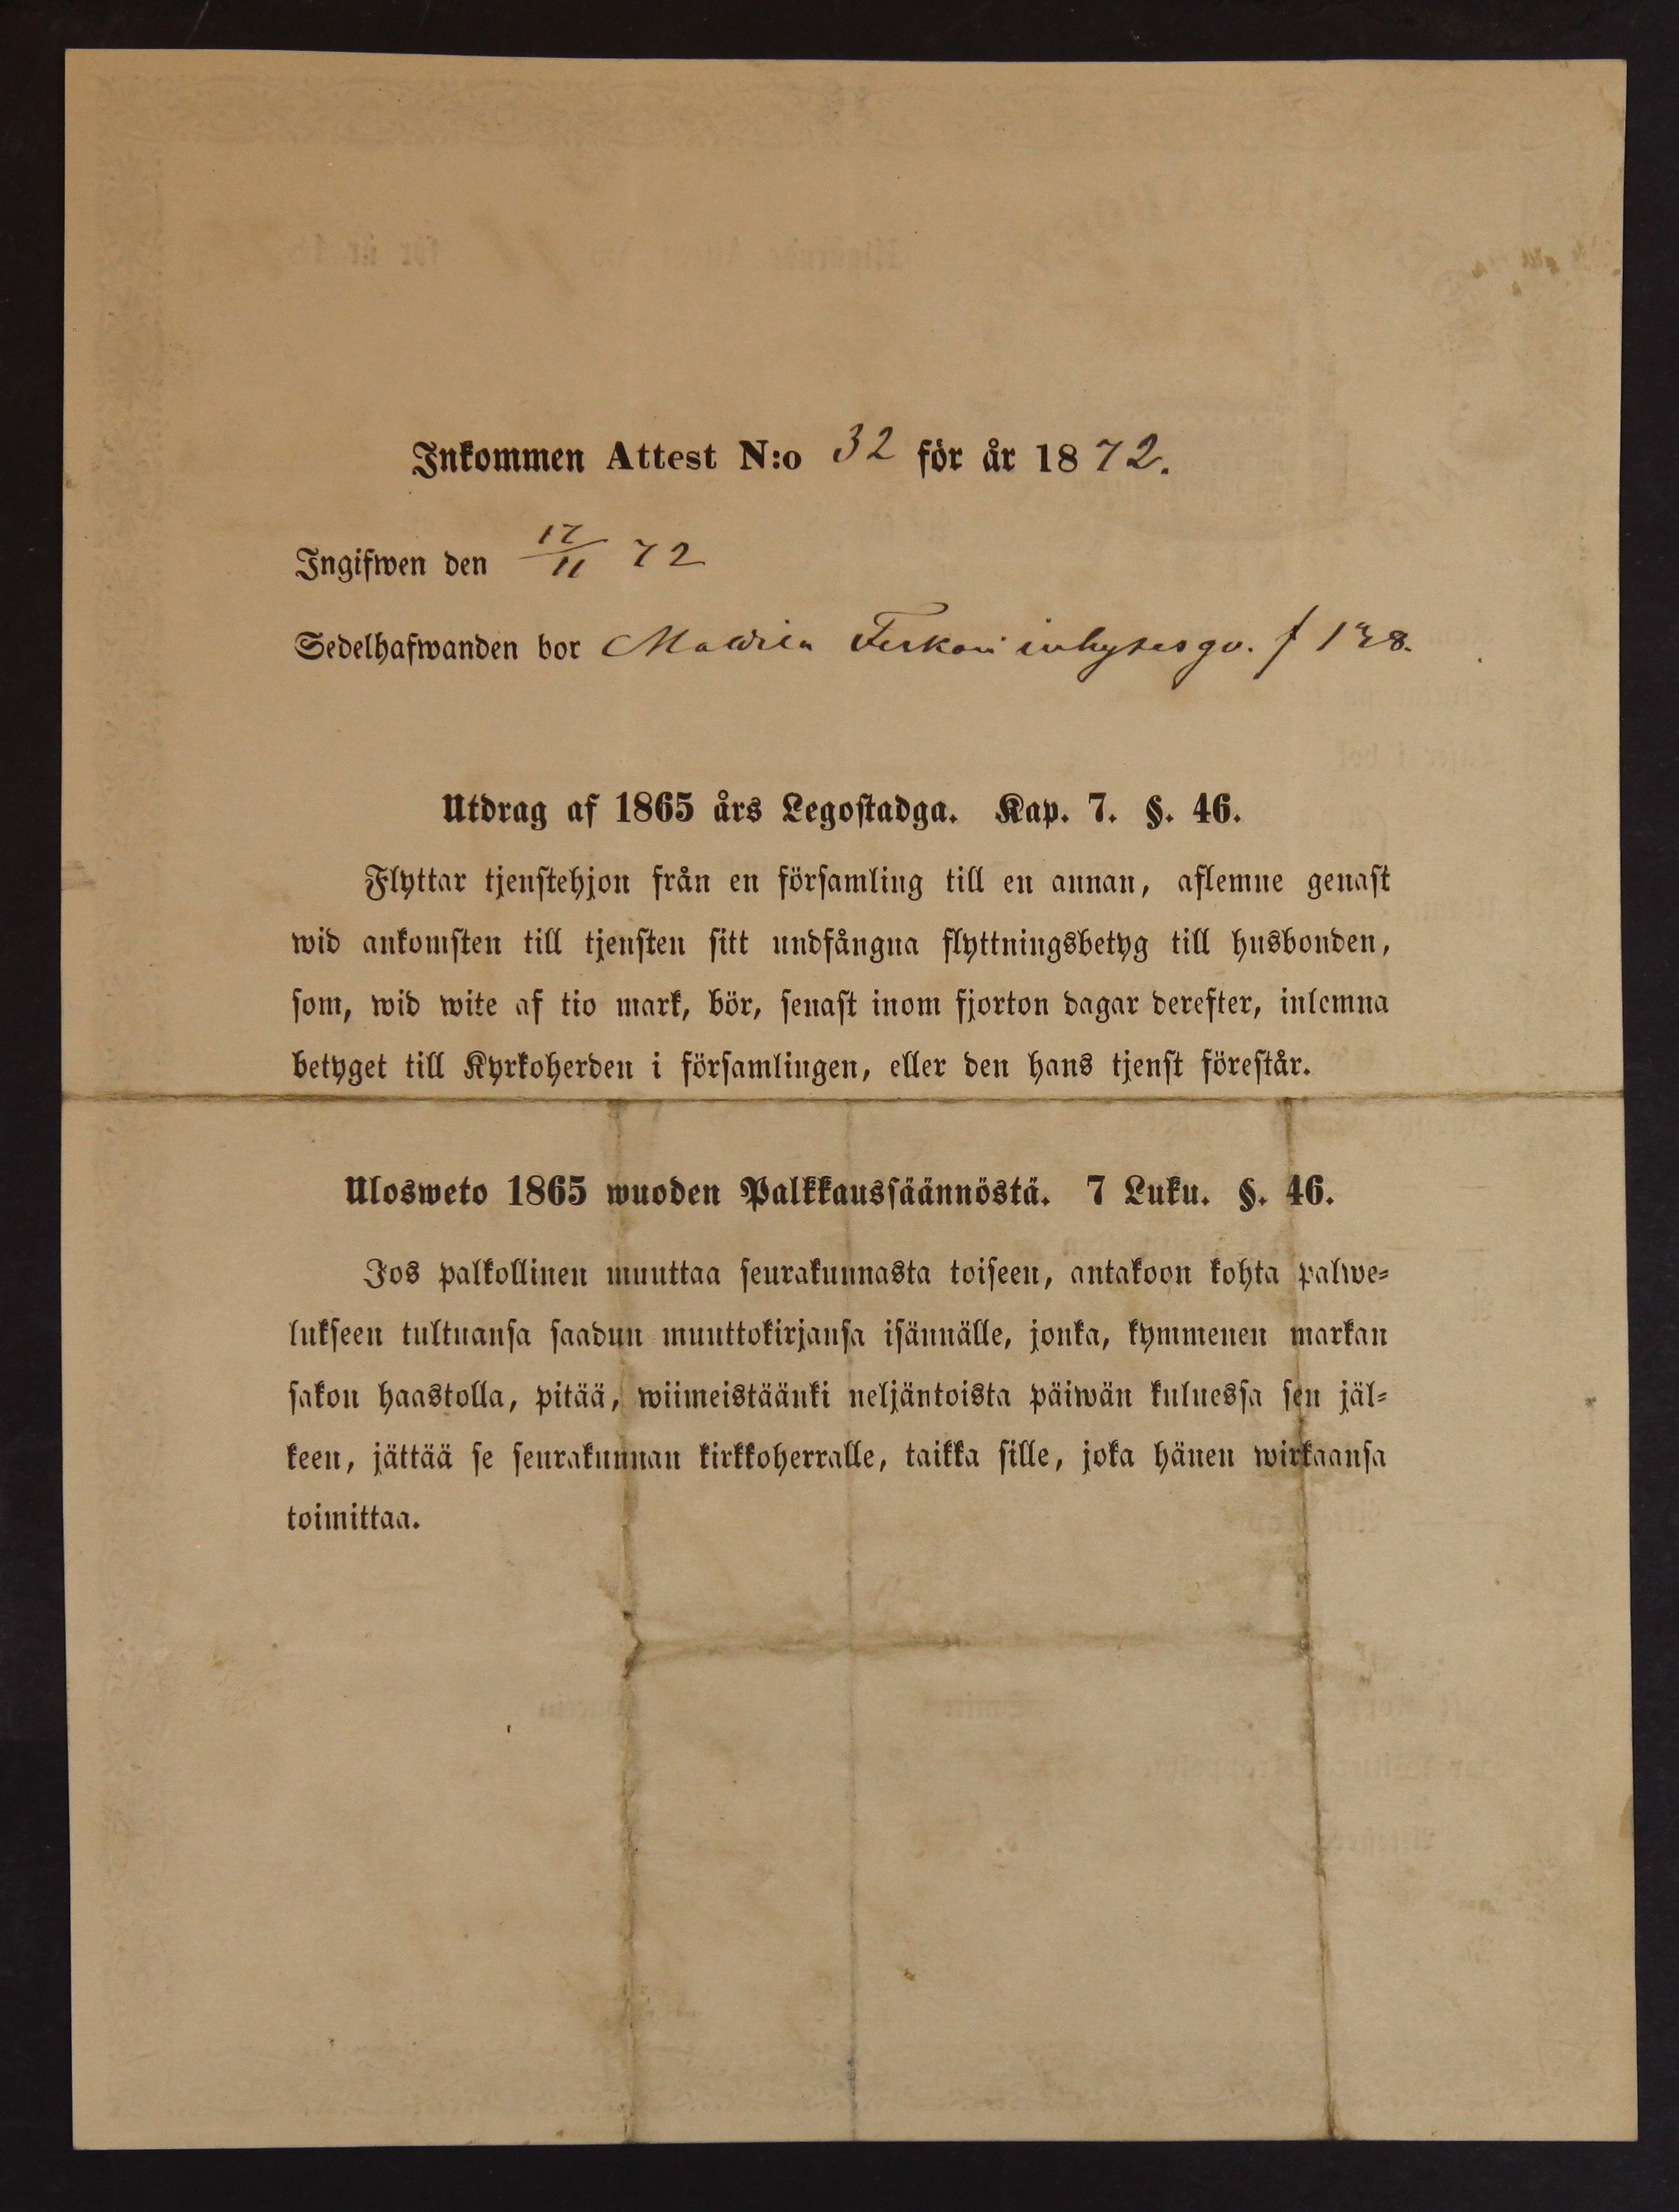 Inkommen Attest N:o 32 för år 1872.
Ingifwen den 17/11 72
Sedelhafwanden bor inhyses
Utdrag af 1865 års Legostadga. Kap. 7. §. 46.
Flyttar tjenstehjon från en församling till en annan, aflemne genast
wid ankomsten till tjensten sitt undfångna flyttningsbetyg till husbonden,
som, wid wite af tio mark, bör, senast inom fjorton dagar derefter, inlemna
betyget till Kyrkoherden i församlingen, eller den hans tjenst förestår.
Ulosweto 1865 wuoden Palkkaussäännöstä. 7 Luku. §. 46.
Jos palkollinen muuttaa seurakunnasta toiseen, antakoon kohta palwe-
lukseen tultuansa saadun muuttokirjansa isännälle, jonka, kymmenen markan
sakon haastolla, pitää, wiimeistäänki neljäntoista päiwän kuluessa sen jäl-
keen, jättää se seurakunnan kirkkoherralle, taikka sille, joka hänen wirkaansa
toimittaa.